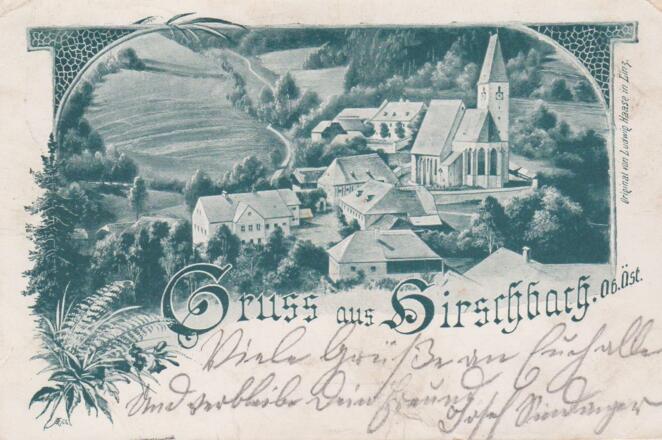 Original von Ludwig Haase in Linz.
Gruss aus Hirschbach. Ob. Öst.
Viele Grüße an Euch alle
Und verbleibe Dein Freund
Josef